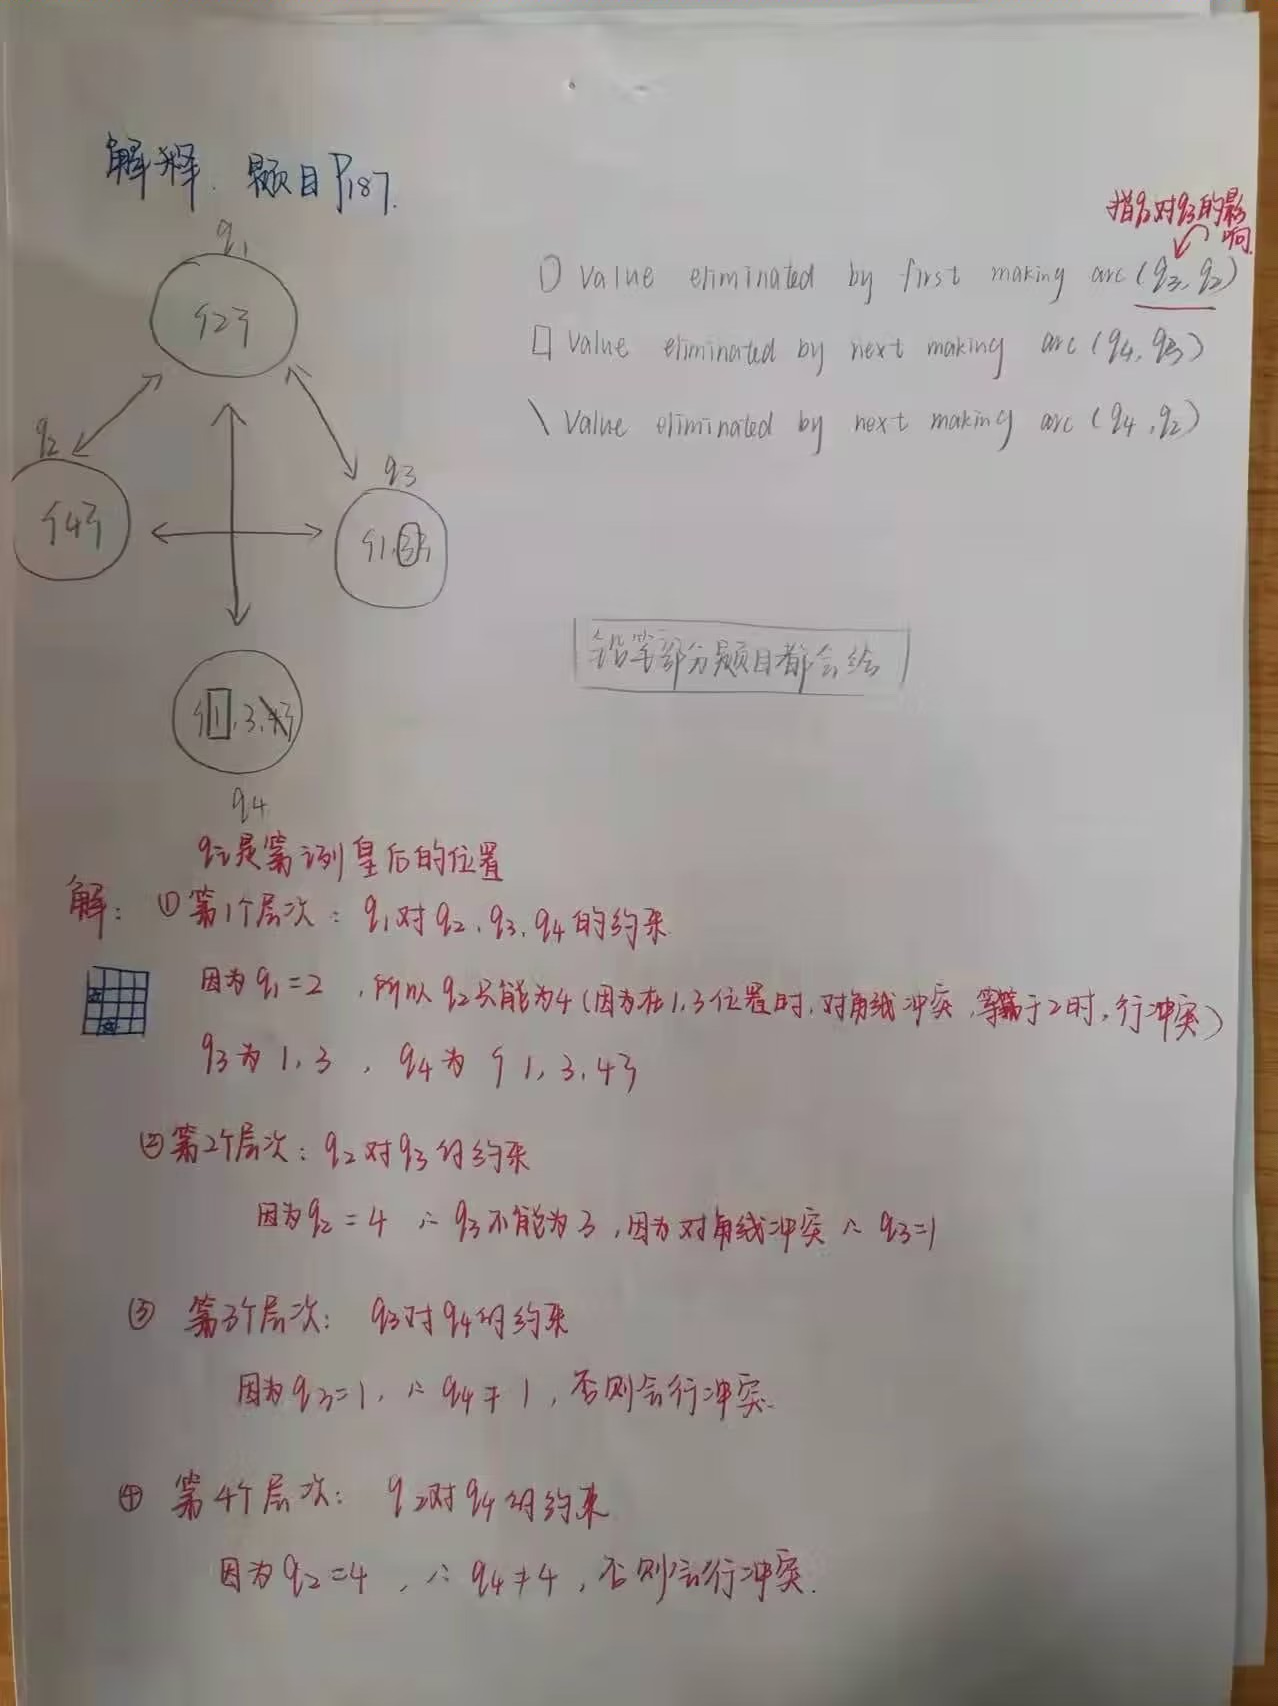 解释. 题目P187.
指q2对q3的影
响
○ Value eliminated by first making arc (q3, q2)
□ Value eliminated by next making arc (q4, q3)
\ Value eliminated by next making arc (q4, q2)
q1
{2}
q2
{4}
q3
{1,3}
{1,3,4}
q4
铅笔部分题目都会给
qi是第i列皇后的位置
解: ①第1个层次: q1对q2、q3、q4的约束
因为q1=2, 所以q2只能为4(因为在1,3位置时, 对角线冲突, 等于2时, 行冲突)
q3为1,3, q4为{1,3,4}
②第2个层次: q2对q3的约束
因为q2=4 ∴q3不能为3, 因为对角线冲突∴q3=1
③ 第3个层次: q3对q4的约束
因为q3=1, ∴q4≠1, 否则会行冲突.
④ 第4个层次: q2对q4的约束
因为q2=4, ∴q4≠4, 否则会行冲突.